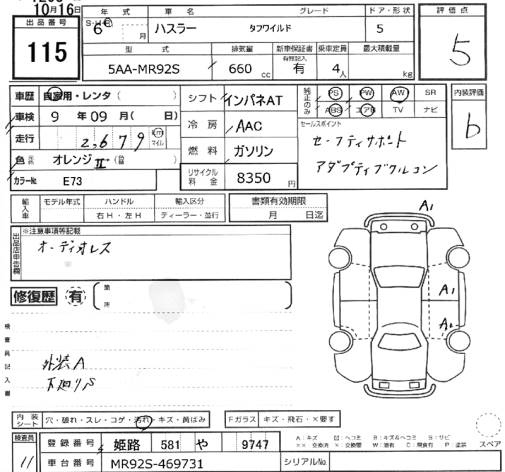 10月16日
出品番号
115
年式 車名 グレード ドア・形状 評価点
6 月 ハスラー タフワイルド 5 5
型式 排気量 新車保証書 乗車定員 最大積載量
有無記入
5AA-MR92S 660 cc 有 4人 kg
車歴 自家用・レンタ ( )
車検 9 年 09 月 ( 日)
走行 2,679 km マイル
色 オレンジⅡ ( )
カラーNo E73
シフト インパネAT
冷房 AAC
燃料 ガソリン
リサイクル料金 8350 円
純正のみ PS PW AW SR
ABS エアB TV ナビ
内装評価
b
セールスポイント
セーフティサポート
アダプティブクルコン
輸入車 モデル年式 ハンドル 輸入区分 書類有効期限
年 右H・左H ディーラー・並行 月 日迄
出品店申告欄 ※注意事項等記載
オーディオレス
修復歴 有 箇所
検査員記入書
外装A
下廻りS
A1
A1
A1
内装シート 穴・破れ・スレ・コゲ・汚れ・キズ・黄ばみ Fガラス キズ・飛石・×要す
検査員 11
登録番号 姫路 581 や 9747
車台番号 MR92S-469731 シリアルNo.
A:キズ U:ヘコミ B:キズ&ヘコミ S:サビ
××:交換済 ×:交換要 W:補修有 C:腐食有 P:塗装 スペア